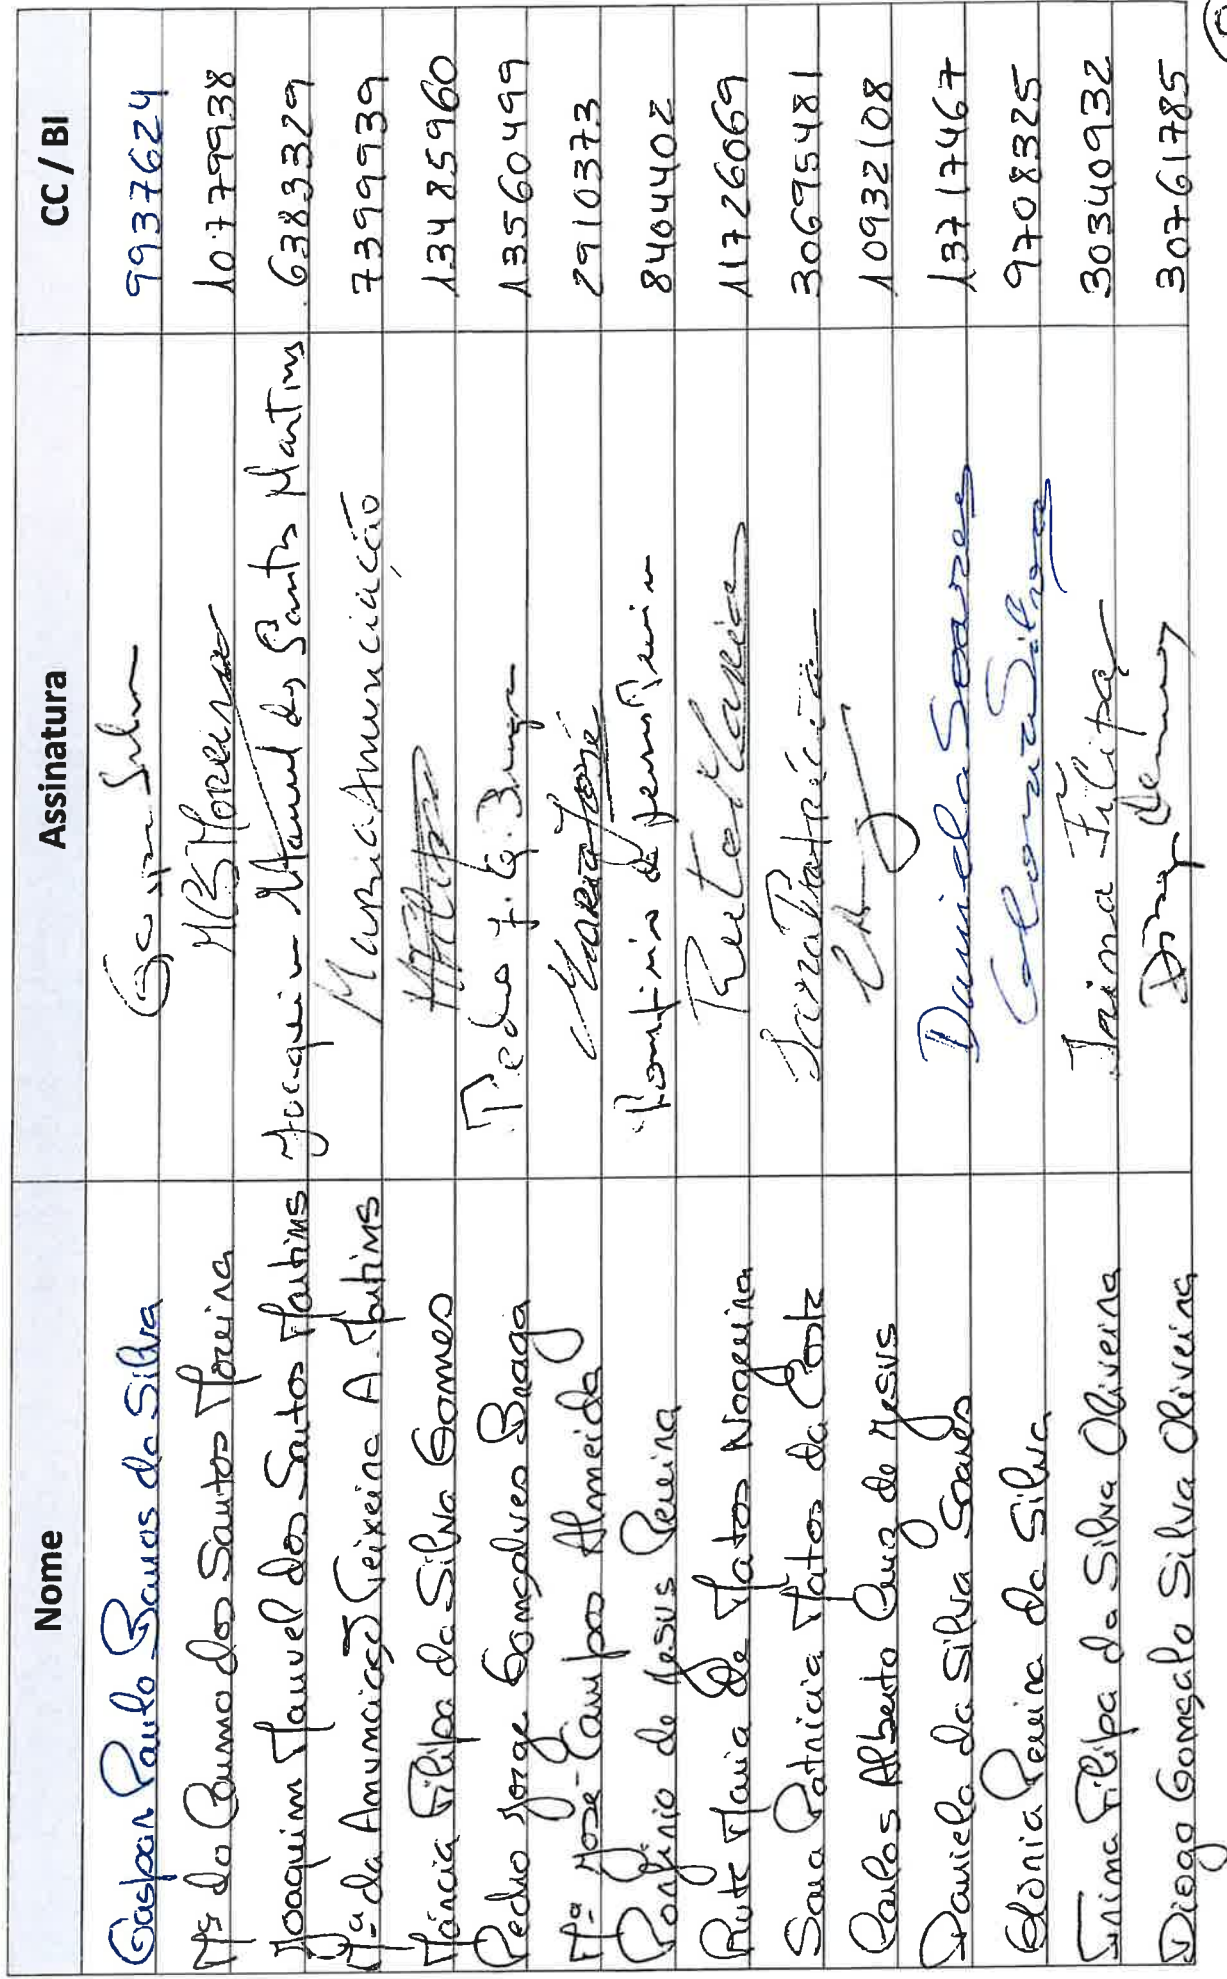 Nome Assinatura CC / BI
Gaspar Paulo Barros da Silva Silva 9937624
Mª do Carmo dos Santos Moreira MCSMoreira 10779938
Joaquim Manuel dos Santos Martins Joaquim Manuel dos Santos Martins 6383329
Mª da Anunciação Teixeira A. Martins Maria Anunciação 7399939
Márcia Filipa da Silva Gomes 13485960
Pedro Jorge Gonçalves Braga Pedro J. G. Braga 13560499
Mª José Campos Almeida Maria José 2910373
Porfírio de Jesus Pereira Porfírio de Jesus Pereira 8404402
Rute Maria de Matos Nogueira Rute Maria 11726069
Sara Patrícia Matos da Costa Sara Patrícia 30695481
Carlos Alberto Cruz de Jesus 10932108
Daniela da Silva Soares Daniela Soares 13717467
Glória Pereira da Silva Gloria Silva 9708325
Irina Filipa da Silva Oliveira Irina Filipa 30340932
Diogo Gonçalo Silva Oliveira Diogo 30761785